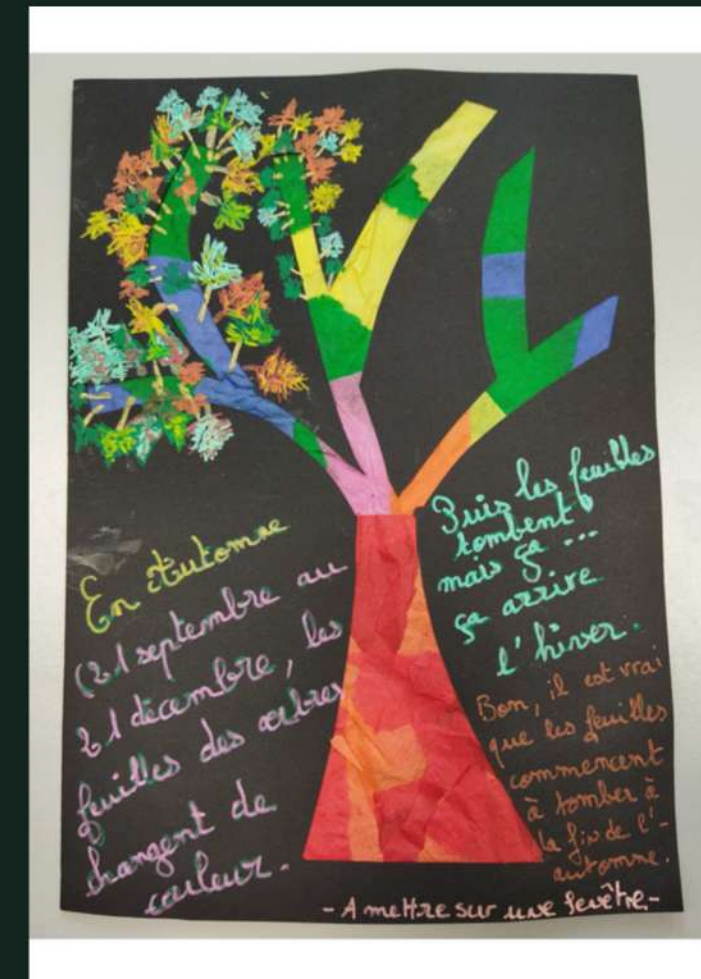 En Automne
(21 septembre au
21 décembre, les
feuilles des arbres
changent de
couleur.
Puis les feuilles
tombent
mais ça ...
ça arrive
l'hiver.
Bon, il est vrai
que les feuilles
commencent
à tomber à
la fin de l'-
automne.
- A mettre sur une fenêtre -